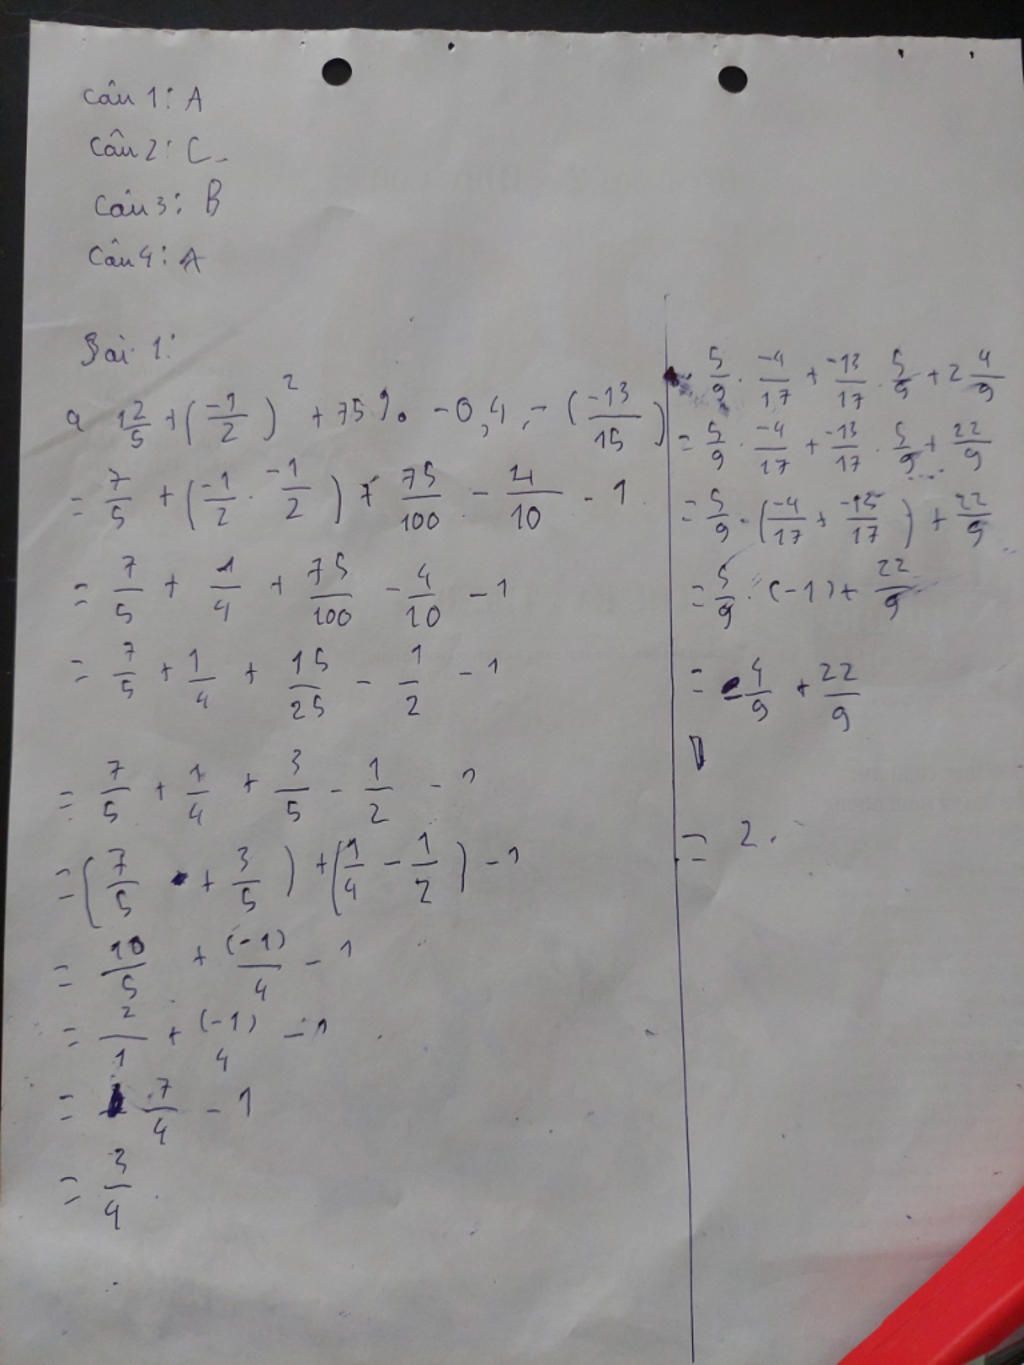 Câu 1: A
Câu 2: C
Câu 3: B
Câu 4: A
Bài 1:
a 1 2/5 + (-1/2)^2 + 75% - 0,4 - (-13/15)
= 7/5 + (-1/2 . -1/2) + 75/100 - 4/10 - 1
= 7/5 + 1/4 + 75/100 - 4/10 - 1
= 7/5 + 1/4 + 15/25 - 1/2 - 1
= 7/5 + 1/4 + 3/5 - 1/2 - 1
= (7/5 + 3/5) + (1/4 - 1/2) - 1
= 10/5 + (-1)/4 - 1
= 2/1 + (-1)/4 - 1
= 7/4 - 1
= 3/4
5/9 . -4/17 + -13/17 . 5/9 + 2 4/9
= 5/9 . -4/17 + -13/17 . 5/9 + 22/9
= 5/9 . (-4/17 + -13/17) + 22/9
= 5/9 . (-1) + 22/9
= -4/9 + 22/9
= 2.